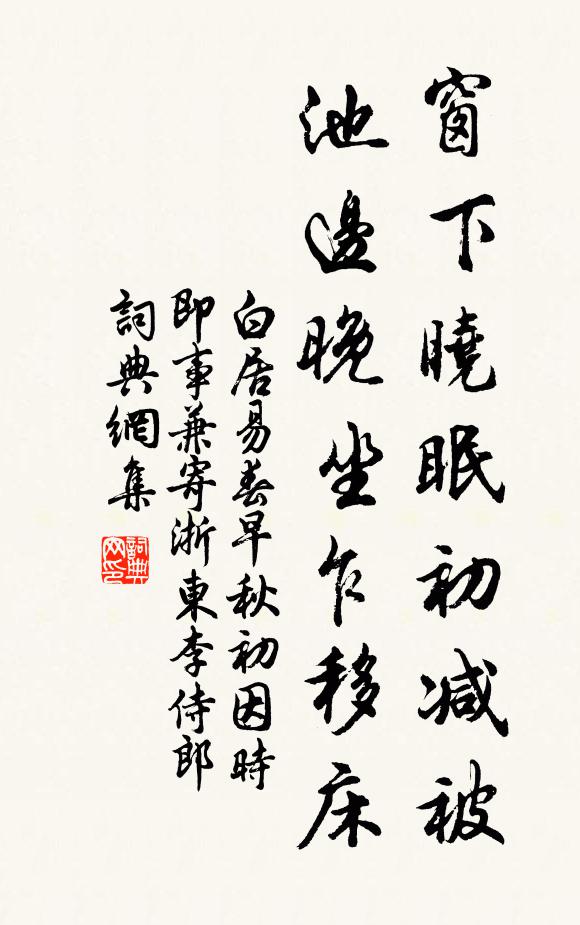 窗下曉眠初减被
池邊晚坐乍移床
白居易春早秋初因時
即事兼寄浙東李侍郎
詞典網集
詞典
网印